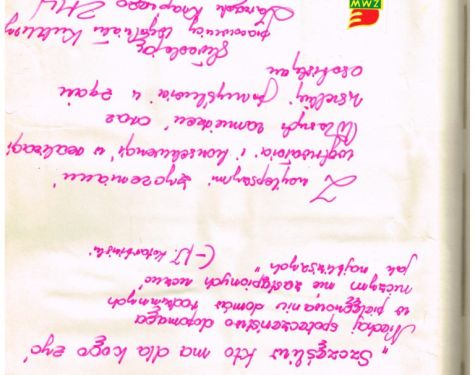 „Szczęśliw kto ma dla kogo żyć
Niechaj społeczeństwo dopomaga
w pielęgnowaniu domów rodzinnych
niczym nie zastąpionych uczuć
jak najbliższych"
(-) T. Kotarbiński
Z najlepszymi życzeniami
wytrwałości i konsekwencji w realizacji
Waszych zamierzeń oraz
wszelkiej pomyślności w życiu
osobistym
składają
pracownicy Wydziału Kultury
Zarządu Krajowego ZMW
ZMW